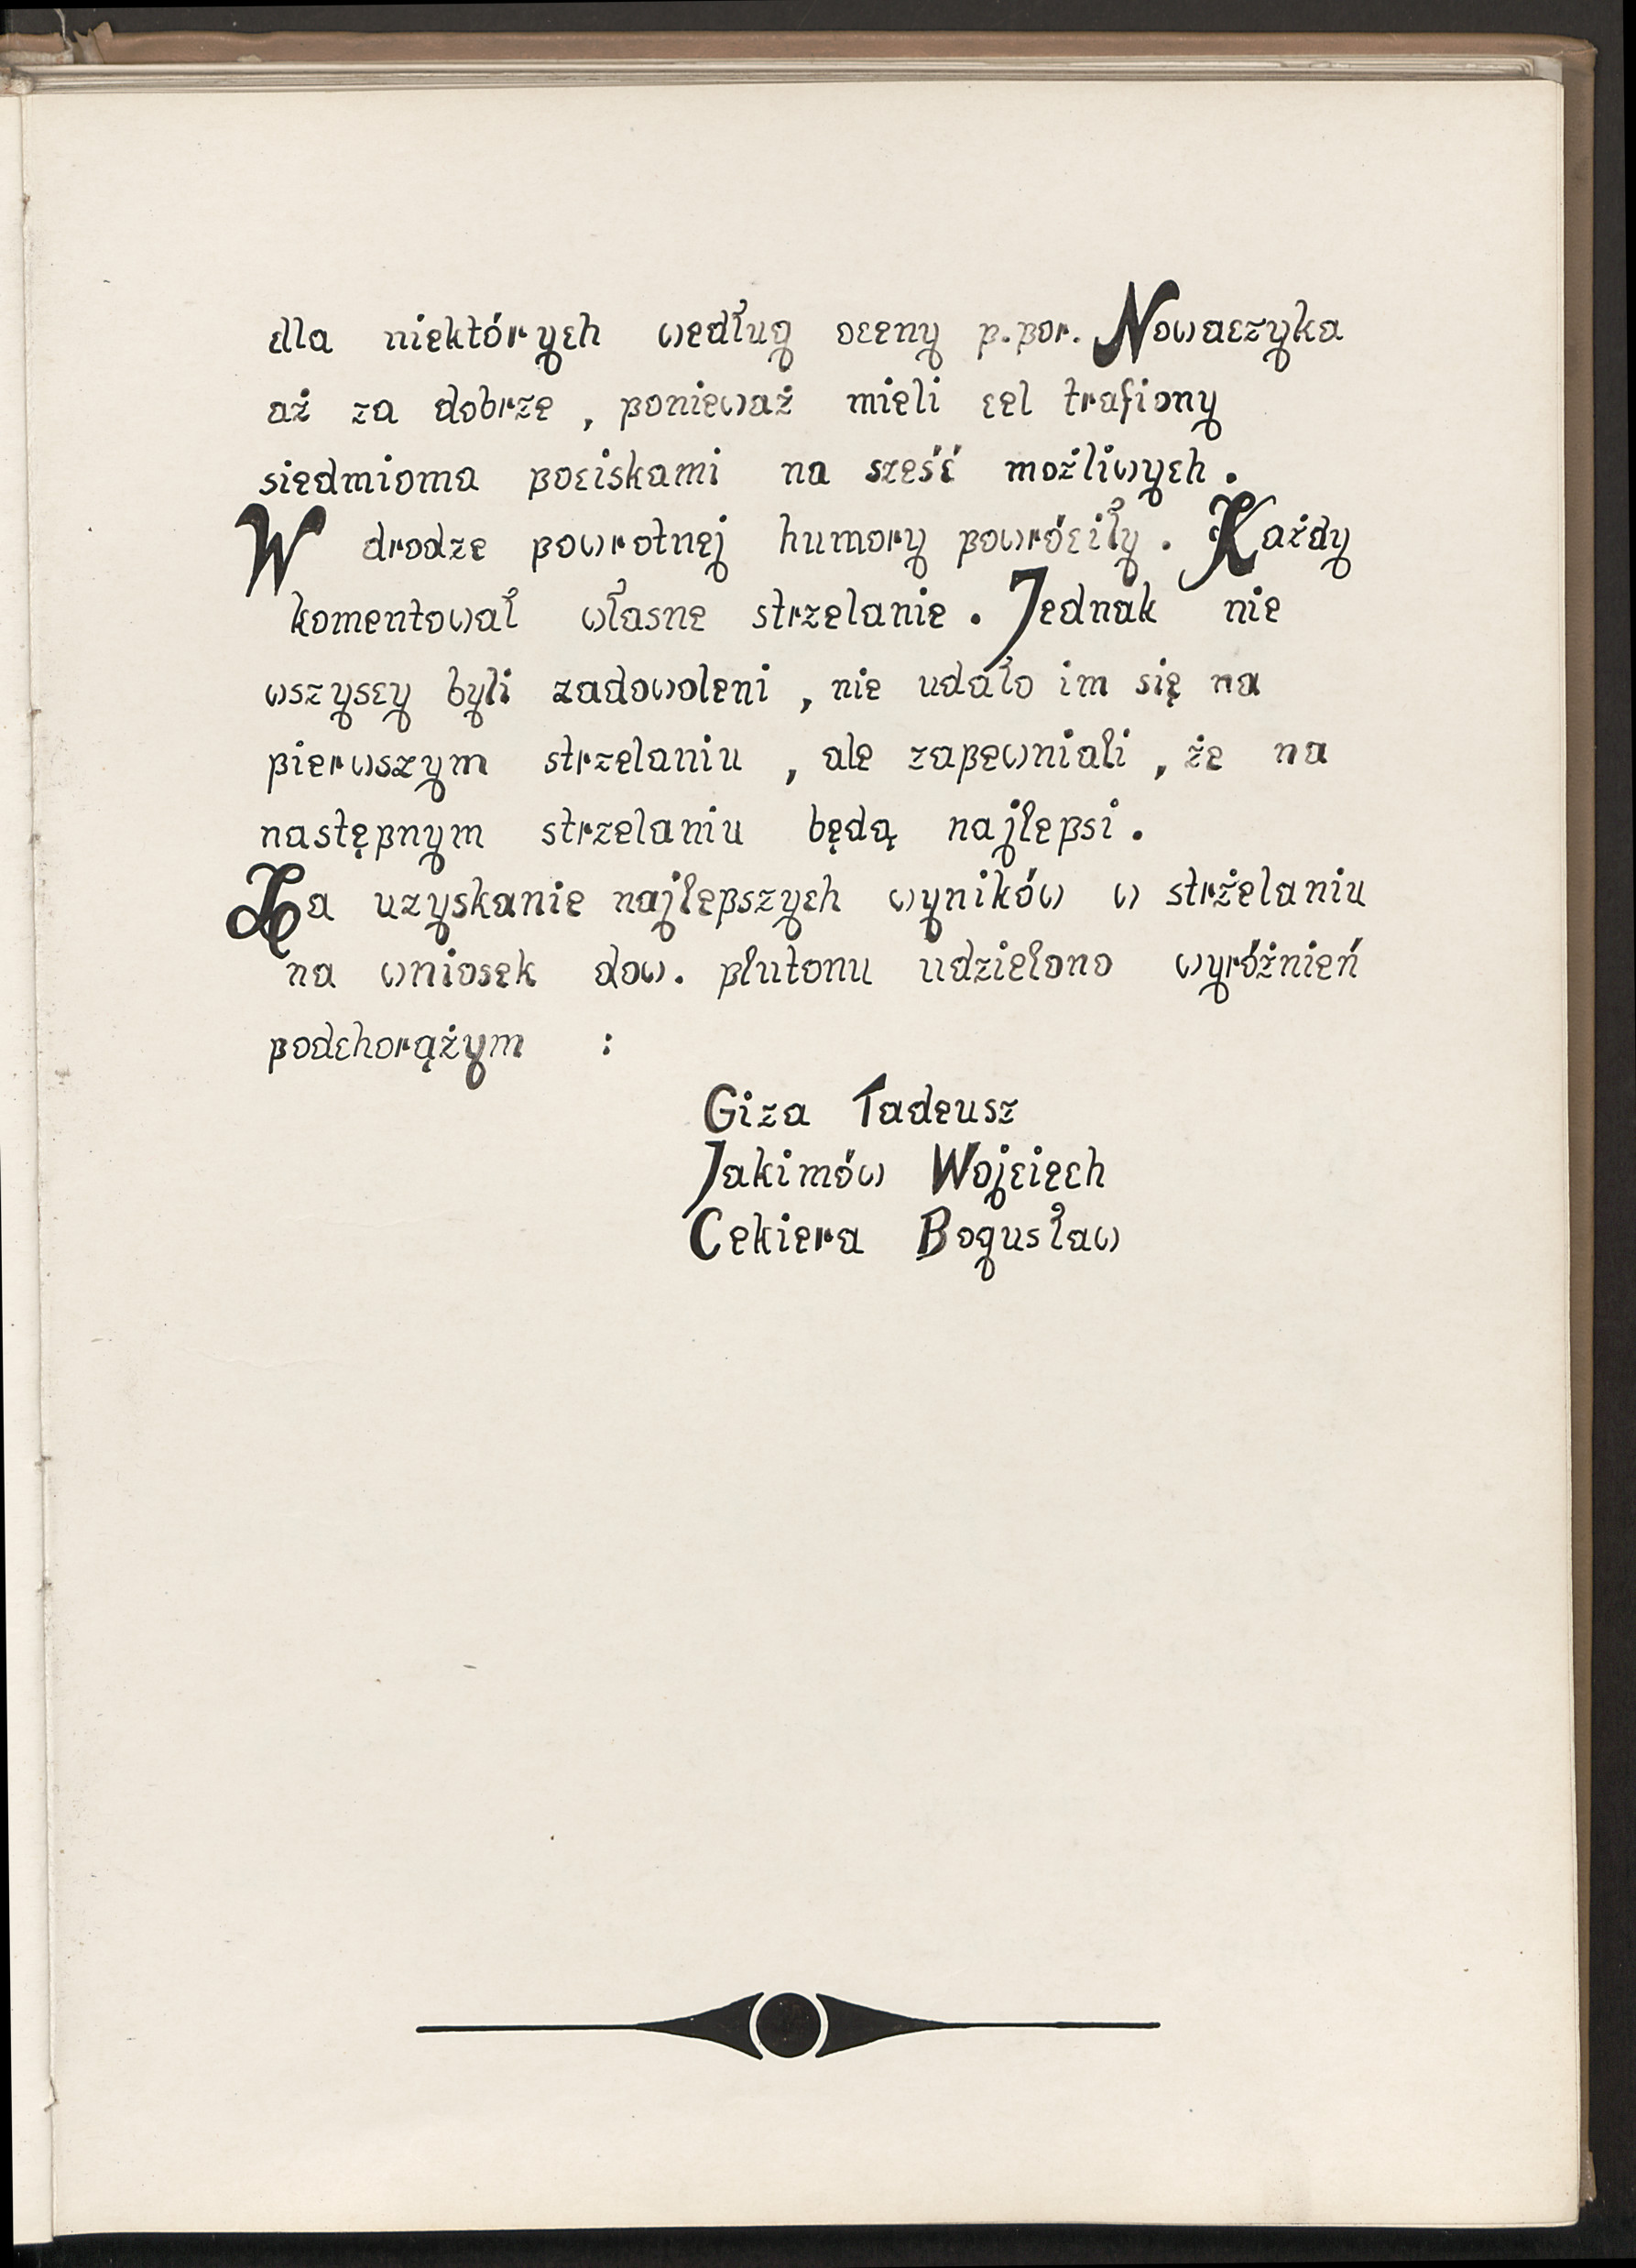 dla niektórych według oceny p.por. Nowaczyka
aż za dobrze , ponieważ mieli cel trafiony
siedmioma pociskami na sześć możliwych .
W drodze powrotnej humory powróciły . Każdy
komentował własne strzelanie . Jednak nie
wszyscy byli zadowoleni , nie udało im się na
pierwszym strzelaniu , ale zapewniali , że na
następnym strzelaniu będą najlepsi .
Za uzyskanie najlepszych wyników w strżelaniu
na wniosek dow. plutonu udzielono wyróżnień
podchorążym :
Giza Tadeusz
Jakimów Wojciech
Cekiera Bogusław